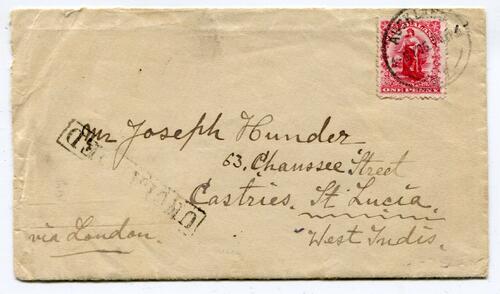 AUCKLAND
ONE PENNY
Mr Joseph Hunder
63. Chaussee Street
Castries. St Lucia.
West Indis.
via London.